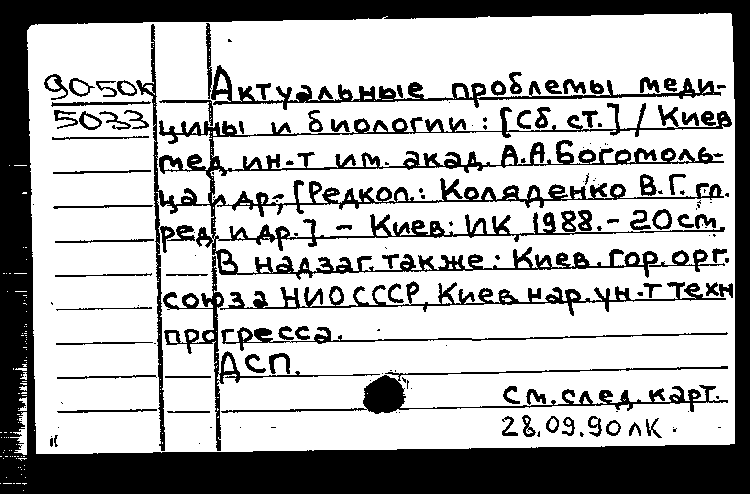 90-50к Актуальные проблемы меди-
5033 цины и биологии : [Сб. ст.] / Киев
мед. ин-т им. акад. А.А.Богомоль-
ца и др.; [Редкол.: Коляденко В.Г. гл.
ред. и др.] - Киев: ИК, 1988. - 20 см.
В надзаг. также: Киев. гор. орг.
союза НИО СССР, Киев нар. ун-т техн
прогресса.
ДСП.
См. след. карт.
28.09.90 лк.